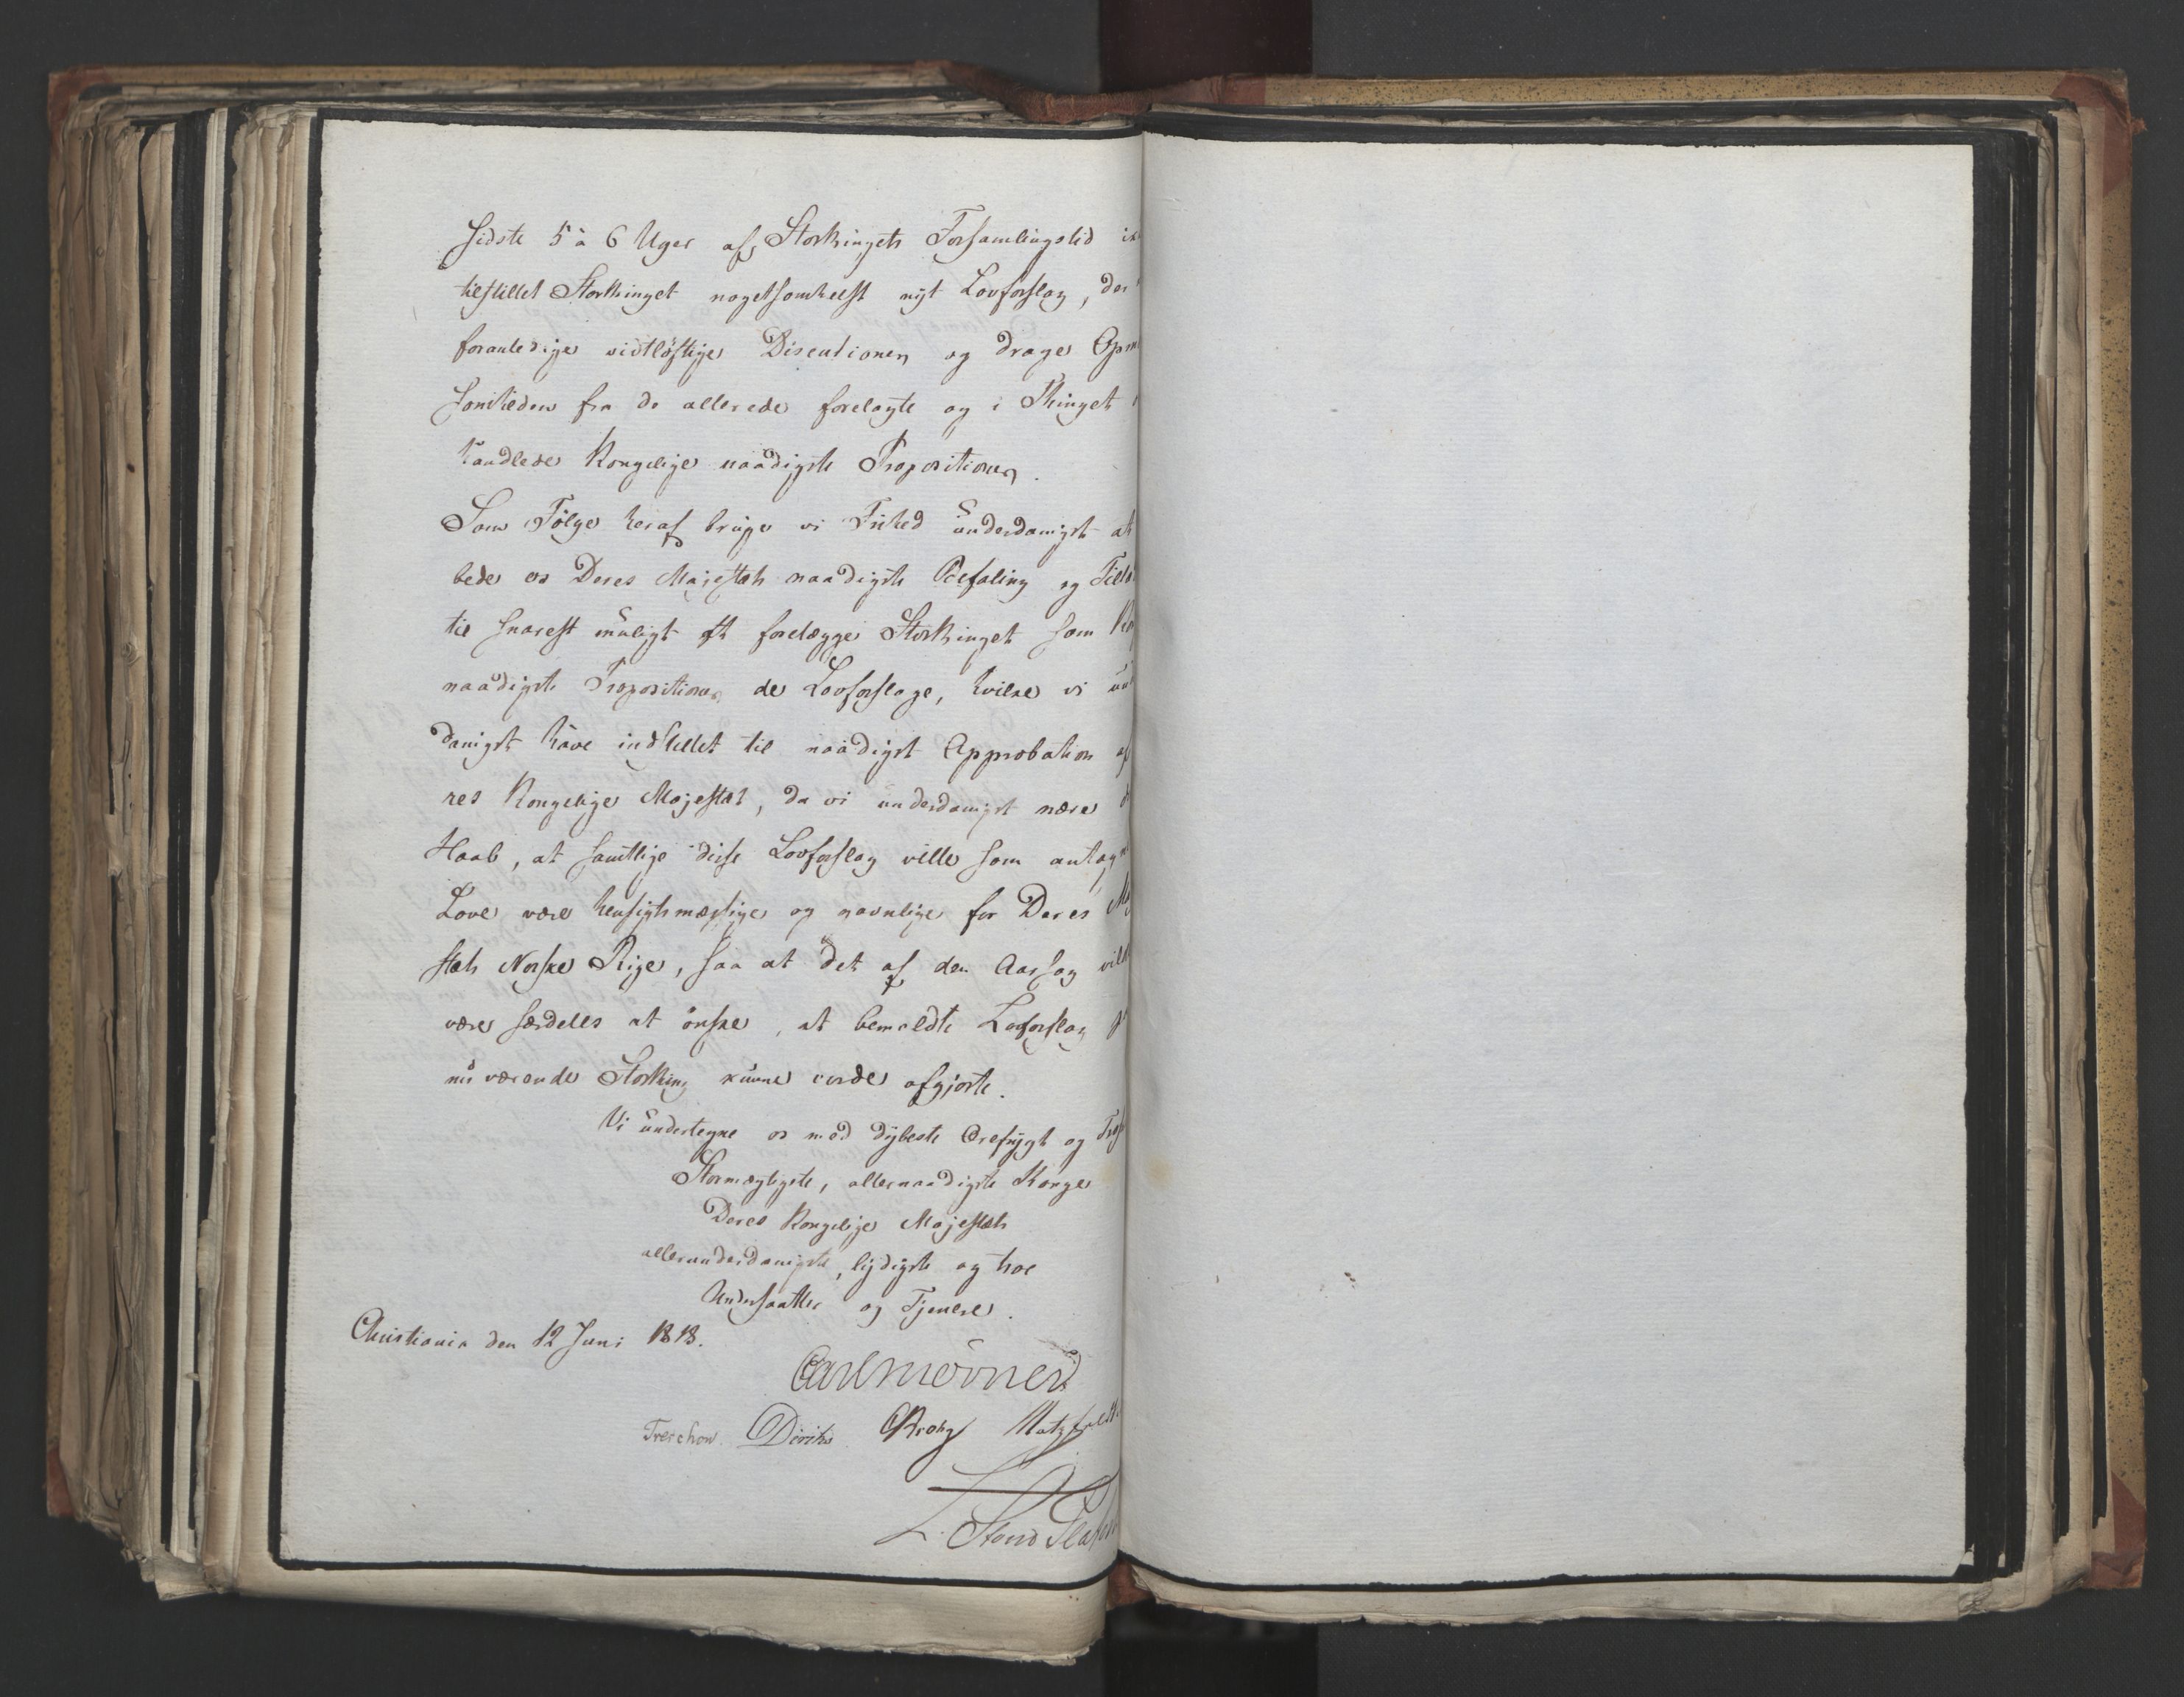 sidste 5 à 6 Uger af Storthingets Forsamlingstid
tilstillet Storthinget nogetsomhelst nÿt Lovforslag, der
foranledige vidtløftige Discutioner og drage
somheden fra de allerede forelagte og i Thinget
handlede Kongelige naadigste Propositioner.
Som Følge heraf bruge vi Frihed underdanigst at
bede os Deres Majestæts naadigste Befaling og
til snarest muligt at forelægge Storthinget som
naadigste Propositioner de Lovforslage, hvilke vi
danigst have indstillet til naadigst Approbation af
res Kongelige Majestæt, da vi underdanigst nære
Haab, at samtlige disse Lovforslag ville som antagne
Love være hensigtsmæssige og gavnlige for Deres
stæts Norske Rige, saa at det af den Aarsag vilde
være særdeles at ønske, at bemeldte Lovforslag
nu værende Storthing kunne vorde afgjorte.
Vi undertegne os med dÿbeste Ærefrÿgt og
Stormægtigste, allernaadigste Konge
Deres Kongelige Majestæts
allerunderdanigste, lÿdigste og troe
Undersaatter og Tjenere.
Christiania den 12 Juni 1818.
Carl Mörner
Treschow. Diriks Krohg Motzfeldt
L. Stoud Platou